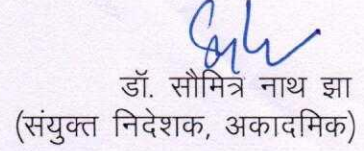 डॉ. सौमित्र नाथ झा
(संयुक्त निदेशक, अकादमिक)